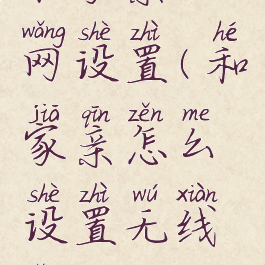 wǎng shè zhì hé
网设置(和
jiā qīn zěn me
家亲怎么
shè zhì wú xiàn
设置无线